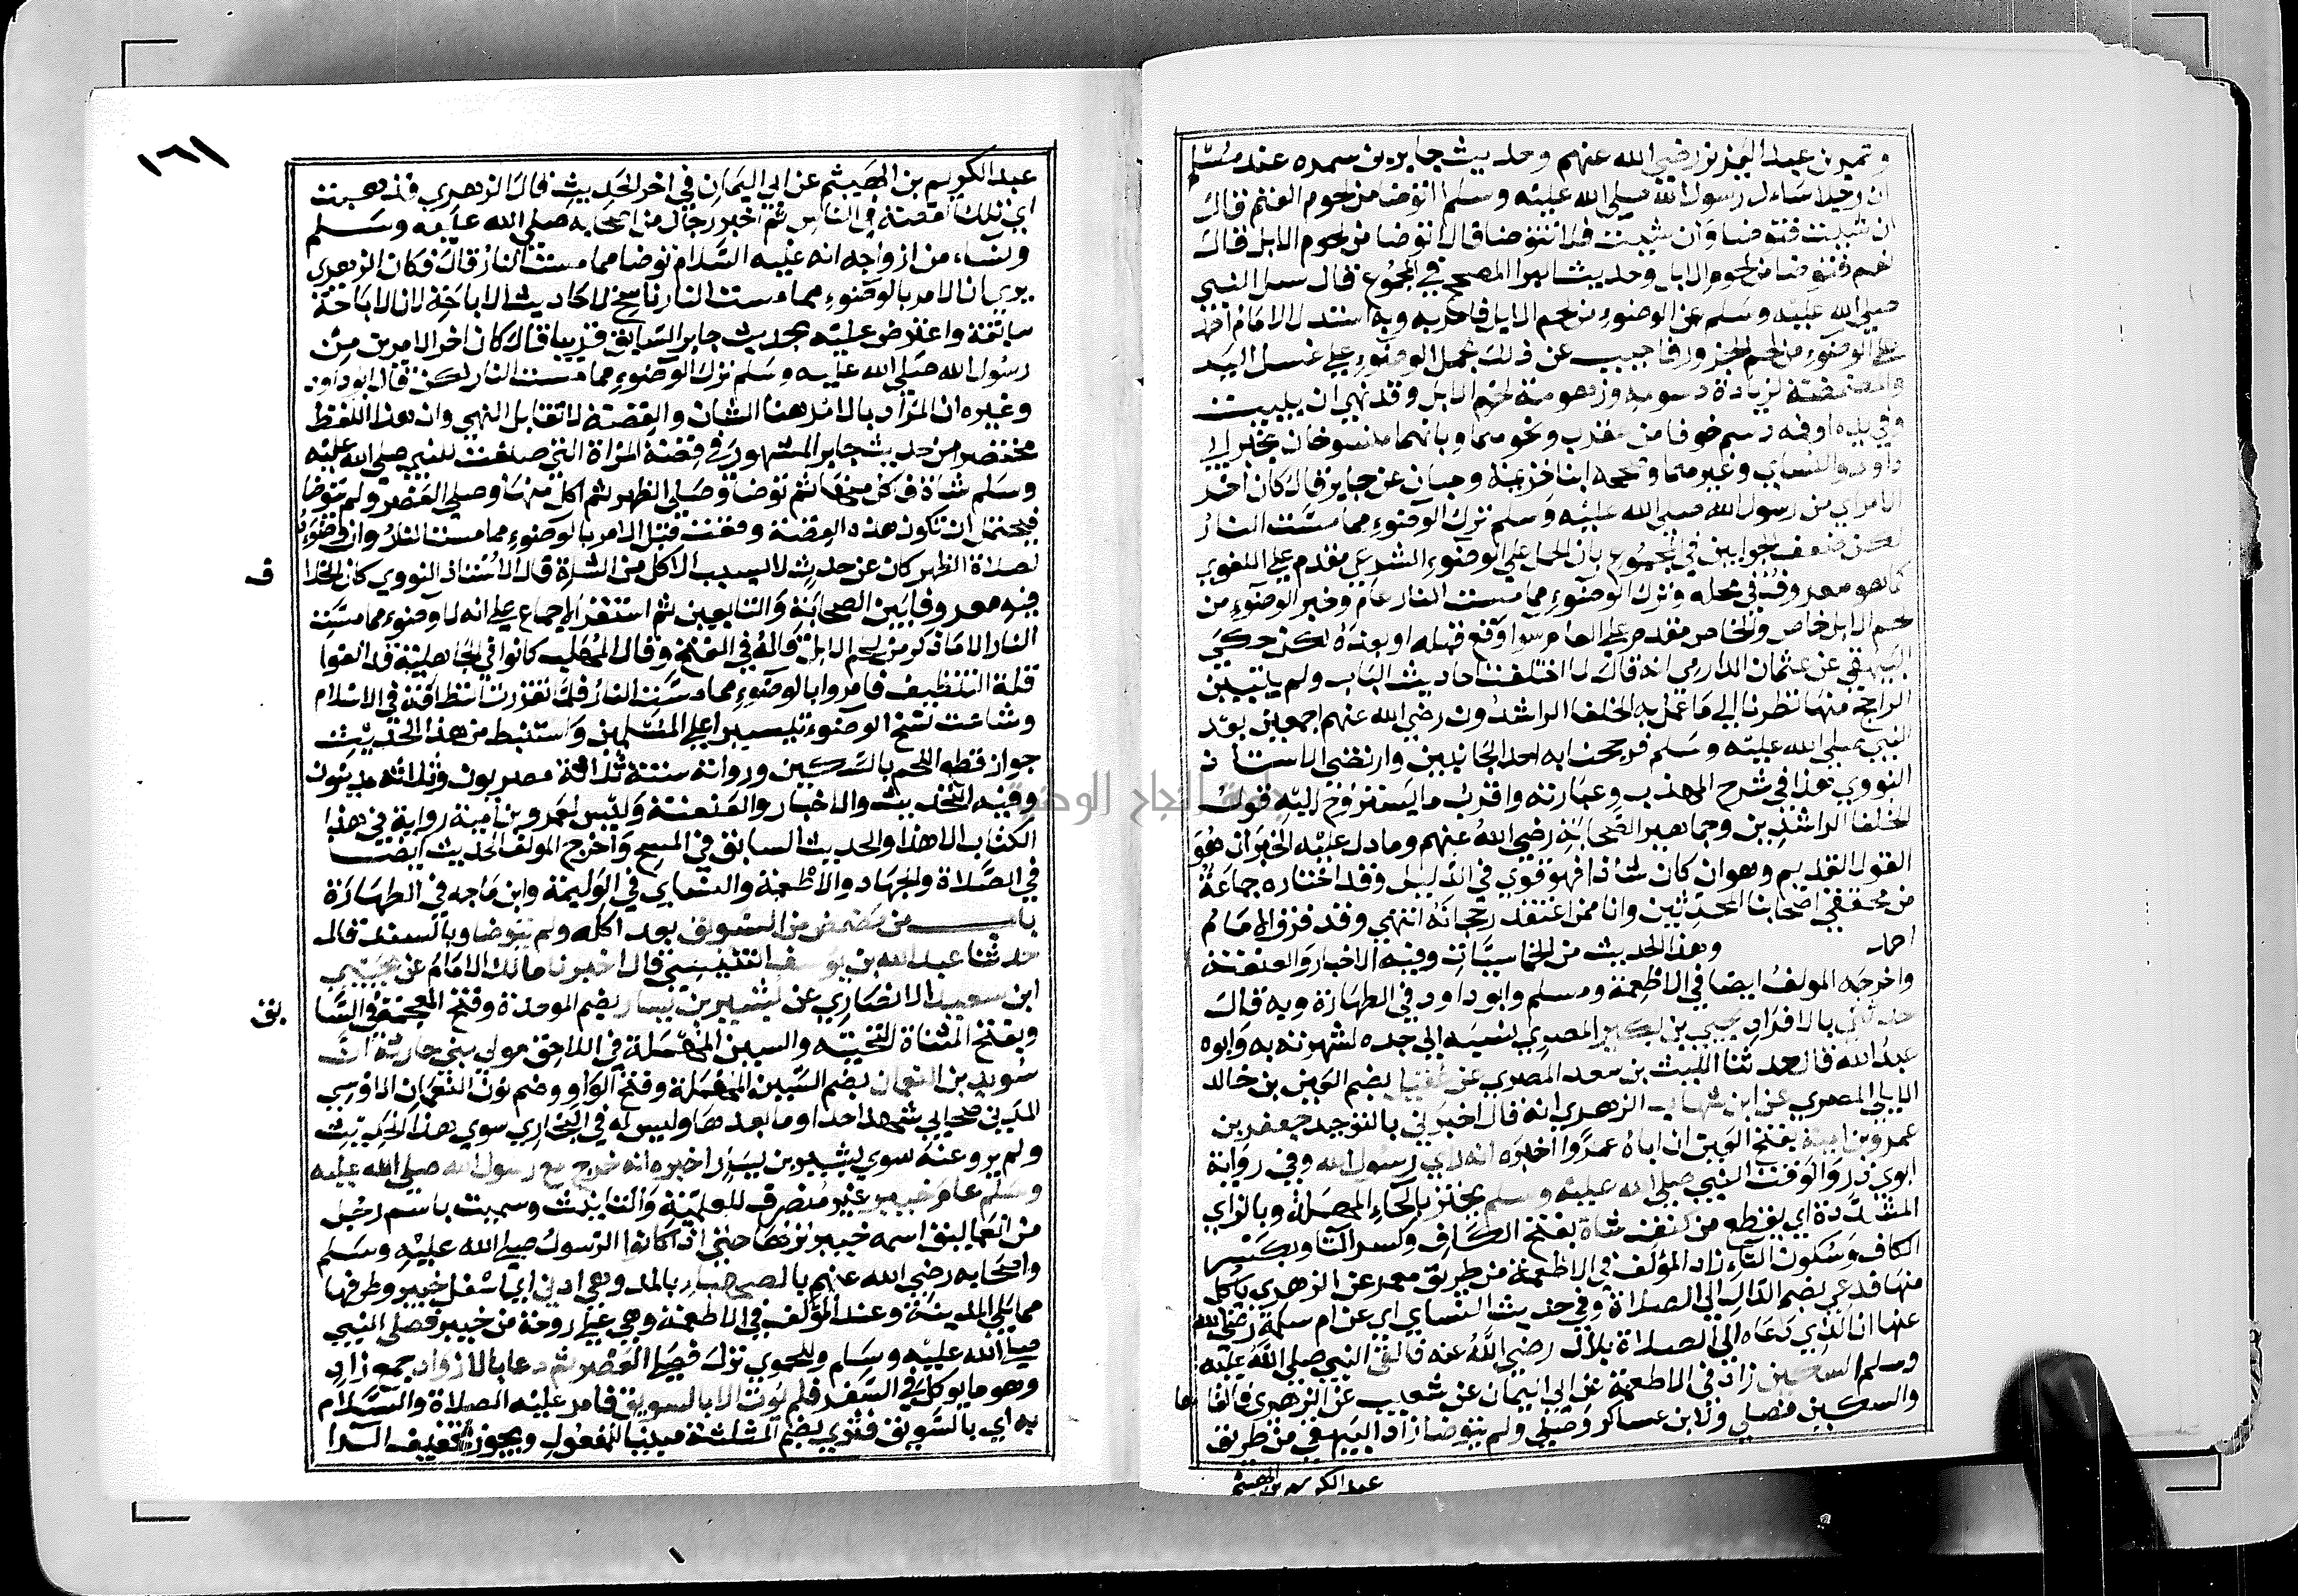 وعمر بن عبد العزيز رضي الله عنهم وحديث جابر بن سمره عند مسلم
ان رجلا ساءل رسول الله صلى الله عليه وسلم انتوضا من لحوم الغنم قال
ان شيت فتوضا وان شيت فلا تتوضا قال انتوضا من لحوم الابل قال
نعم فتوضا من لحوم الابل وحديث البرا المصحح في المجموع قال سيل النبي
صلى الله عليه وسلم عن الوضوء من لحم الابل فامر به وبه استدل الامام احمد
على الوضوء من لحم الجزور فاجيب عن ذلك بحمل الوضوء على غسل اليد
والمضمضة لزيادة دسومة وزهومة لحم الابل وقد نهي ان يبيت
وفي يده او فمه دسم خوفا من عقرب ونحوها وبانهما منسوخان بخبر ابي
داود والنساي وغيرهما وصححه ابنا خزيمة وحبان عن جابر قال كان اخر
الامرين من رسول الله صلى الله عليه وسلم ترك الوضوء مما مست النار
لكن ضعف الجوابين في المجموع بان الحمل على الوضوء الشرعي مقدم على اللغوي
كما هو معروف في محله وترك الوضوء مما مست النار عام وخبر الوضوء من
لحم الابل خاص والخاص مقدم على العام سوا وقع قبله او بعده لكن حكى
البيهقي عن عثمان الدارمي انه قال لما اختلفت احاديث الباب ولم يتبين
الراجح منها نظرنا الى ما عمل به الخلفا الراشدون رضي الله عنهم اجمعين بعد
النبي صلى الله عليه وسلم فرجحنا به احد الجانبين وارتضى الاستاذ
النووي هذا في شرح المهذب وعبارته واقرب ما يستروح اليه قول
الخلفا الراشدين وجماهير الصحابة رضي الله عنهم وما دل عليه الخبر ان هو
القول القديم وهو ان كان شاذا فهو قوي في الدليل وقد اختاره جماعة
من محققي اصحابنا المحدثين وانا ممن اعتقد رجحانه انتهى وقد فرق الامام
احمد وهذا الحديث من الخماسيات وفيه الاخبار والعنعنة
واخرجه المولف ايضا في الاطعمة ومسلم وابو داود في الطهارة وبه قال
حدثني بالافراد يحيى بن بكير المصري نسبه الى جده لشهرته به وابوه
عبد الله قال حدثنا الليث بن سعد المصري عن عقيل بضم العين بن خالد
الايلي المصري عن ابن شهاب الزهري انه قال اخبرني بالتوحيد جعفر بن
عمرو بن امية بفتح العين ان اباه عمروا اخبره انه راى رسول الله وفي رواية
ابوي ذر والوقت النبي صلى الله عليه وسلم يحتز بالحاء المهملة وبالزاي
المشددة اي يقطع من كتف شاة بفتح الكاف وكسر التا وبكسر
الكاف وسكون التاء زاد المؤلف في الاطعمة من طريق معمر عن الزهري ياكل
منها فدعي بضم الدال الى الصلاة وفي حديث النساي اي عن ام سلمة رضي الله
عنها ان الذي دعاه الى الصلاة بلال رضي الله عنه فالقى النبي صلى الله عليه
وسلم السكين زاد في الاطعمة عن ابي اليمان عن شعيب عن الزهري فالقاها
والسكين فصلى ولابن عساكر وصلى ولم يتوضا زاد البيهقي من طريق
عبد الكريم بن الهيثم
١٦١
عبد الكريم بن الهيثم عن ابي اليمان في اخر الحديث قال الزهري فذهبت
اي تلك القصة في الناس ثم اخبر رجال من اصحابه صلى الله عليه وسلم
ونساء من ازواجه انه عليه السلام توضا مما مست النار قال فكان الزهري
يرى ان الامر بالوضوء مما مست النار ناسخ لاحاديث الاباحة لان الاباحة
سابقة واعترض عليه بحديث جابر السابق قريبا قال كان اخر الامرين من
رسول الله صلى الله عليه وسلم ترك الوضوء مما مست النار لكن قال ابو داود
وغيره ان المراد بالامر هنا الشان والقصة لا تقابل النهي وان هذا اللفظ
مختصر من حديث جابر المشهور في قصة المراة التي صنعت للنبي صلى الله عليه
وسلم شاة فاكل منها ثم توضا وصلى الظهر ثم اكل منها وصلى العصر ولم يتوضا
فيحتمل ان تكون هذه القصة وقعت قبل الامر بالوضوء مما مست النار وان وضوءه
لصلاة الظهر كان عن حدث لا بسبب الاكل من الشاة قال الاستاذ النووي كان الخلاف
فيه معروفا بين الصحابة والتابعين ثم استقر الاجماع على انه لا وضوء مما مست
النار الا ما ذكر من لحم الابل قاله في الفتح وقال المهلب كانوا في الجاهلية قد الفوا
قلة التنظيف فامروا بالوضوء مما مست النار فلما تقررت النظافة في الاسلام
وشاعت نسخ الوضوء تيسيرا على المسلمين واستنبط من هذا الحديث
جواز قطع اللحم بالسكين ورواته ستة ثلاثة مصريون وثلاثة مدنيون
وفيه التحديث والاخبار والعنعنة وليس لعمرو بن امية رواية في هذا
الكتاب الا هذا والحديث السابق في المسح واخرج المولف الحديث ايضا
في الصلاة والجهاد والاطعمة والنساي في الوليمة وابن ماجه في الطهارة
باب من مضمض من السويق بعد اكله ولم يتوضا وبالسند قال
حدثنا عبد الله بن يوسف التنيسي قال اخبرنا مالك الامام عن يحيى
ابن سعيد الانصاري عن بشير بن يسار بضم الموحدة وفتح المعجمة في السابق
وبفتح المثناة التحتيه والسين المهملة في اللاحق مولى بني حارثة ان
سويد بن النعمان بضم السين المهملة وفتح الواو وضم نون النعمان الاوسي
المدني صحابي شهد احدا وما بعدها وليس له في البخاري سوى هذا الحديث
ولم يرو عنه سوى بشير بن يسار اخبره انه خرج مع رسول الله صلى الله عليه
وسلم عام خيبر غير منصرف للعلمية والتانيث وسميت باسم رجل
من العماليق اسمه خيبر نزلها حتى اذا كانوا الرسول صلى الله عليه وسلم
واصحابه رضي الله عنهم بالصهباء بالمد وهي ادنى اي اسفل خيبر وطرفها
مما يلي المدينة وعند المؤلف في الاطعمة وهي على روحة من خيبر فصلى النبي
صلى الله عليه وسلم وللحموي نزل فصلى العصر ثم دعا بالازواد جمع زاد
وهو ما يوكل في السفر فلم يوت الا بالسويق فامر عليه الصلاة والسلام
به اي بالسويق فثري بضم المثلثة مبنيا للمفعول ويجوز تخفيف الرا